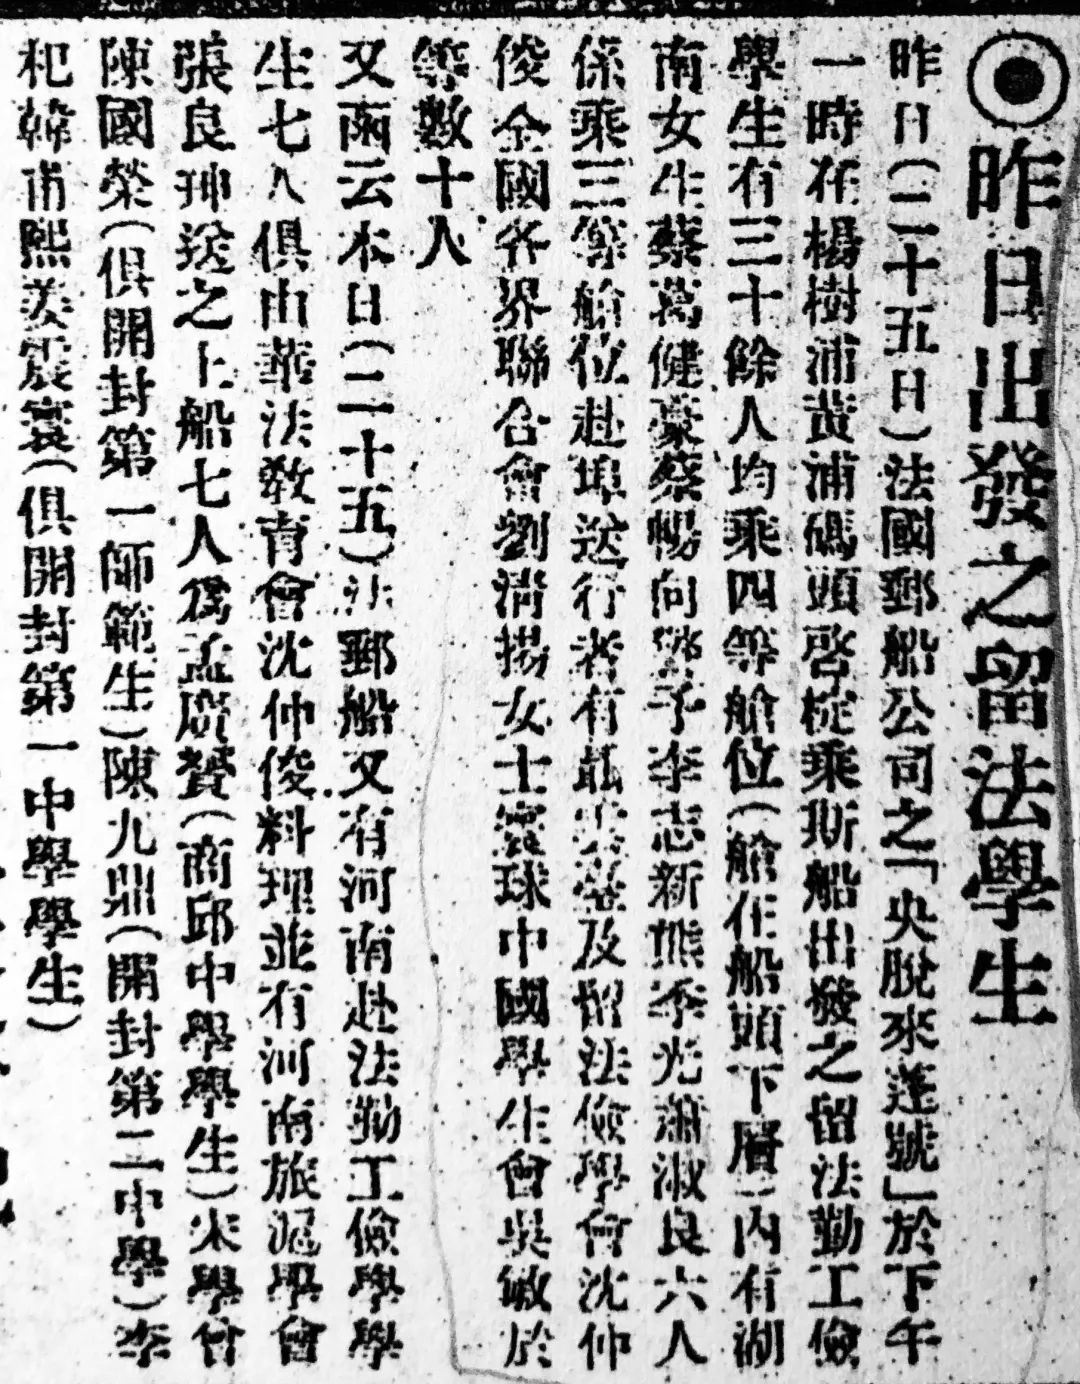 ◉昨日出發之留法學生
昨日(二十五日)法國郵船公司之「央脫來蓬號」於下午
一時在楊樹浦黄浦碼頭啓椗乘斯船出發之留法勤工儉
學生有三十餘人均乘四等艙位(艙在船頭下層)內有湖
南女生蔡葛健豪蔡暢向予李志新熊季光蕭淑良六人
係乘三等艙位赴埠送行者有及留法儉學會沈仲
俊全國各界聯合會劉清揚女士寰球中國學生會吳敏於
等數十人
又函云本日(二十五)法郵船又有河南赴法勤工儉學學
生七人俱由華法敎育會沈仲俊料理並有河南旅滬學會
張良珅送之上船七人爲孟廣贊(商邱中學學生)宋學曾
陳國榮(俱開封第一師範生)陳九鼎(開封第二中學)李
杞韓甫熙姜宸寰(俱開封第一中學學生)